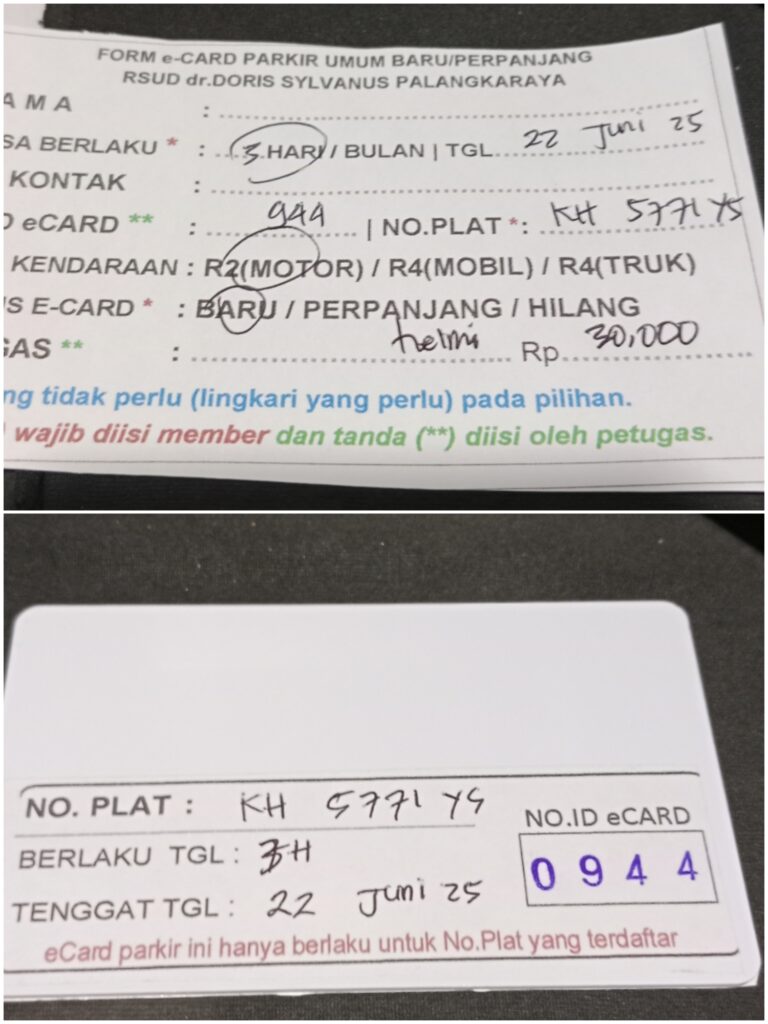 FORM e-CARD PARKIR UMUM BARU/PERPANJANG
RSUD dr.DORIS SYLVANUS PALANGKARAYA
AMA :
SA BERLAKU * : 3 HARI / BULAN | TGL 22 Juni 25
KONTAK :
D eCARD ** : 944 | NO.PLAT *: KH 5771 YS
KENDARAAN : R2(MOTOR) / R4(MOBIL) / R4(TRUK)
S E-CARD * : BARU / PERPANJANG / HILANG
GAS ** : helmi Rp. 30,000
ng tidak perlu (lingkari yang perlu) pada pilihan.
wajib diisi member dan tanda (**) diisi oleh petugas.
NO. PLAT : KH 5771 YS
NO.ID eCARD
BERLAKU TGL : 3H
0 9 4 4
TENGGAT TGL : 22 Juni 25
eCard parkir ini hanya berlaku untuk No.Plat yang terdaftar